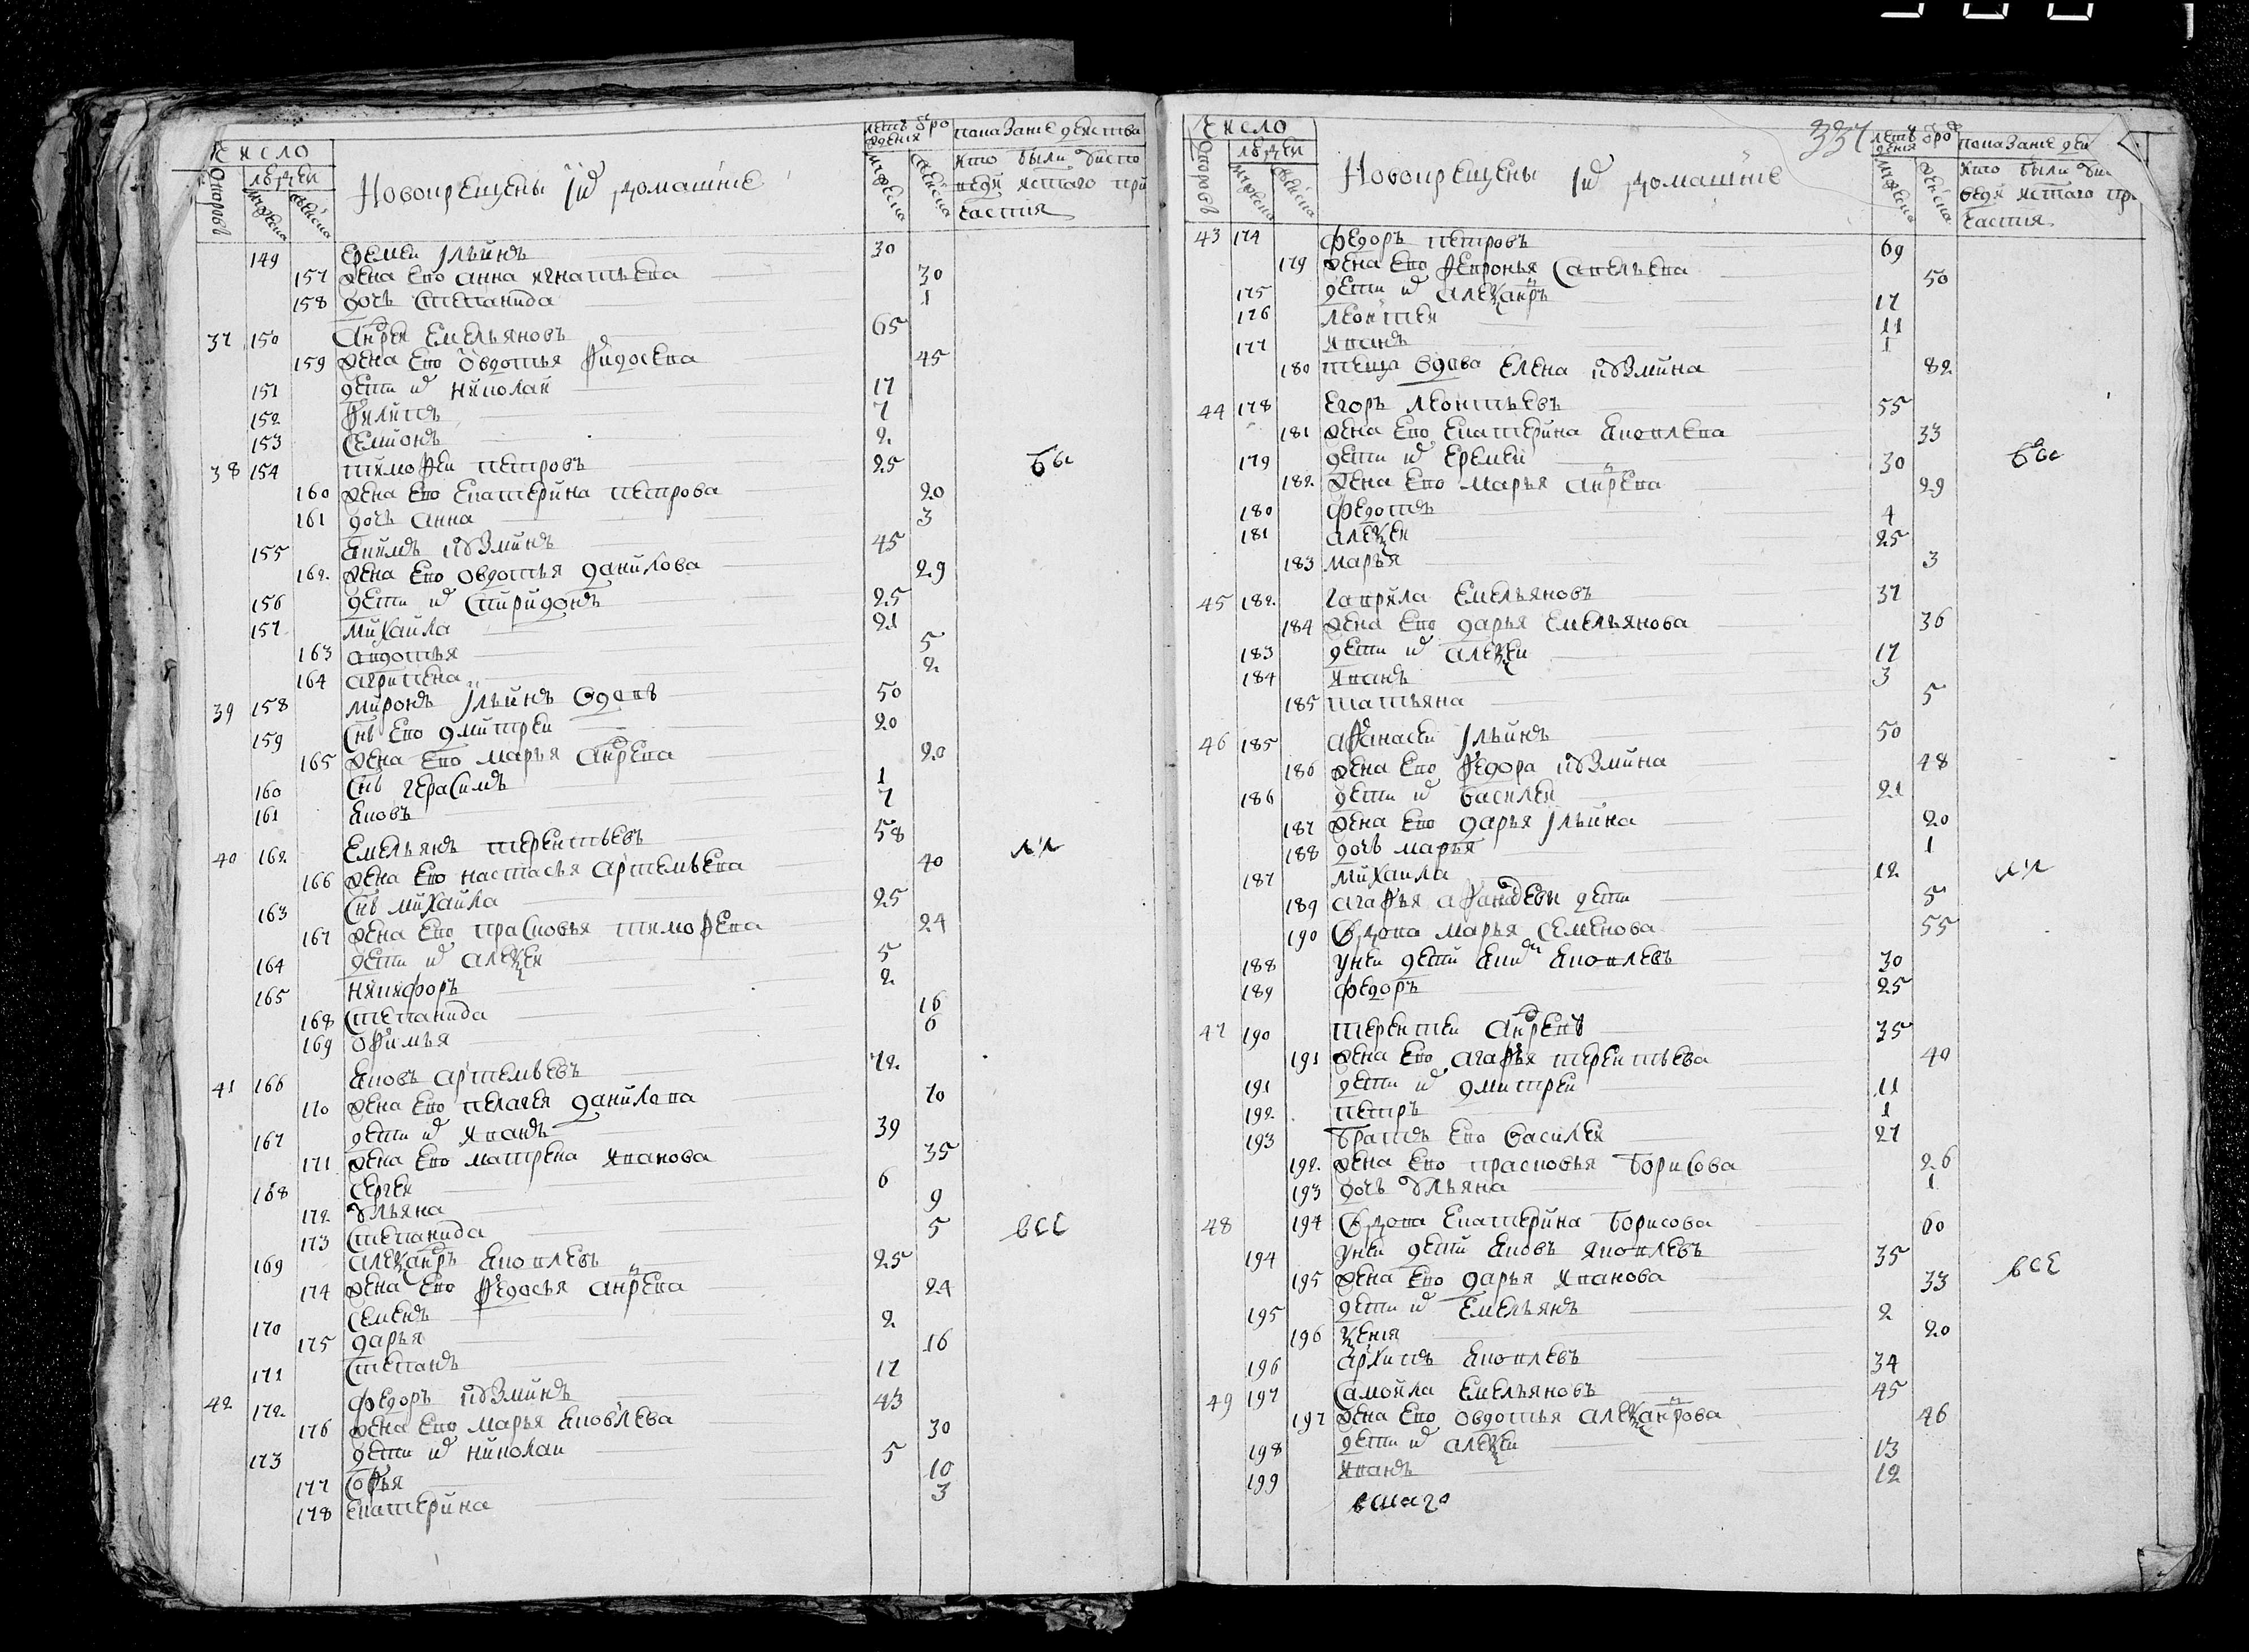 Число
Дворовъ
людей
мужеска
женска
Новокрещены и их домашние
летъ от рождения
мужеска
женска
показание действа
кто были у испо
веди и стаго при
частия
149 Еремеи Ильинъ 30
157 жена ево Анна Игнатьева 30
158 дочь Степанида 1
37 150 Андреи Емельяновъ 65
159 жена ево Овдотья Фидосева 45
151 дети их Николаи 17
152 Филипъ 7
153 Семионъ 2
38 154 Тимофеи Петровъ 25 бы
160 жена ево Екатерина Петрова 20
161 дочь Анна 3
155 Екимъ Кузминъ 45
162 жена ево Овдотья Данилова 29
156 дети их Спиридонъ 25
157 Михаила 21
163 Авдотья 5
164 Агрипена 2
39 158 Миронъ Ильинъ вдовъ 50
159 снъ ево Дмитреи 20
165 жена ево Марья Андрева 20
160 снъ Герасимъ 1
161 Яковъ 7
40 162 Емельянъ Терентьевъ 58 ли
166 жена ево Настасья Артемьева 40
163 снъ Михаила 25
167 жена ево Прасковья Тимофева 24
164 дети их Алексеи 5
165 Никифоръ 2
168 Степанида 16
169 Офимья 6
41 166 Яковъ Артемьевъ 72
170 жена ево Пелагея Данилова 70
167 дети их Иванъ 39
171 жена ево Матрена Иванова 35
168 Сергеи 6
172 Ульяна 9
173 Степанида 5 все
169 Александръ Яковлевъ 25
174 жена ево Федосья Андрева 24
170 Семенъ 2
175 Дарья 16
171 Степанъ 17
42 172 Федоръ Кузминъ 43
176 жена ево Марья Яковлева 30
173 дети их Николаи 5
177 Софья 10
178 Екатерина 3
337
Число
Дворовъ
людей
мужеска
женска
Новокрещены и их домашние
летъ от рождения
мужеска
женска
показание деи
кто были у ис
веди и стаго пр
частия
43 174 Федоръ Петровъ 69
179 жена ево Февронья Савельева 50
175 дети их Александръ 17
176 Леонтеи 11
177 Иванъ 1
180 теща вдова Елена Кузмина 82
44 178 Егоръ Леонтьевъ 55
181 жена ево Екатерина Яковлева 33
179 дети их Еремеи 30 бы
182 жена ево Марья Андрева 29
180 Федотъ 4
181 Алексеи 25
183 Марья 3
45 182 Гаврила Емельяновъ 37
184 жена ево Дарья Емельянова 36
183 дети их Алексеи 17
184 Иванъ 3
185 Татьяна 5
46 185 Афанасеи Ильинъ 50
186 жена ево Федора Кузмина 48
186 дети их Василеи 21
187 жена ево Дарья Ильина 20
188 дочь Марья 1
187 Михаила 12 ли
189 Агафья Афанасевы дети 5
190 Вдова Марья Семенова 55
188 у неи дети Екимъ Яковлевъ 30
189 Федоръ 25
47 190 Терентеи Андревъ 35
191 жена ево Агафья Терентьева 40
191 дети их Дмитреи 11
192 Петръ 1
193 братъ ево Василеи 27
192 жена ево Прасковья Борисова 26
193 дочь Ульяна 1
48 194 Вдова Екатерина Борисова 60
194 у неи дети Яковъ Яковлевъ 35
195 жена ево Дарья Иванова 33 все
195 дети их Емельянъ 2
196 Ксения 20
196 Архипъ Яковлевъ 34
49 197 Самойла Емельяновъ 45
197 жена ево Овдотья Александрова 46
198 дети их Алексеи 13
199 Иванъ 12
всиаго